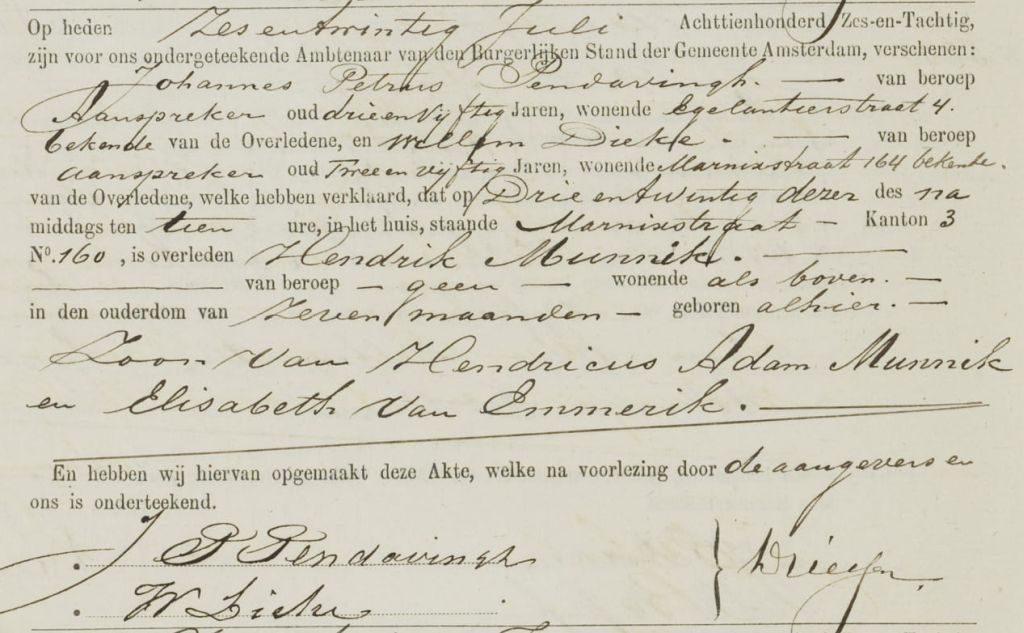 Op heden Zes en twintig Juli Achttienhonderd Zes-en-Tachtig,
zijn voor ons ondergeteekende Ambtenaar van den Burgerlijken Stand der Gemeente Amsterdam, verschenen:
Johannes Petrus Pendavingh. — van beroep
Aanspreker oud drie en vijftig Jaren, wonende Egelantierstraat 4.
bekende van de Overledene, en Willem Dieke. — van beroep
aanspreker oud Twee en vijftig Jaren, wonende Marnixstraat 164 bekende.
van de Overledene, welke hebben verklaard, dat op Drie en twintig dezer des na
middags ten tien ure, in het huis, staande Marnixstraat — Kanton 3
No. 160, is overleden Hendrik Munnik. —
— van beroep — geen — wonende als boven. —
in den ouderdom van Zeven maanden — geboren alhier. —
Zoon van Hendricus Adam Munnik
en Elisabeth van Emmerik. —
En hebben wij hiervan opgemaakt deze Akte, welke na voorlezing door de aangevers en
ons is onderteekend.
J P Pendavingh
W Dieke